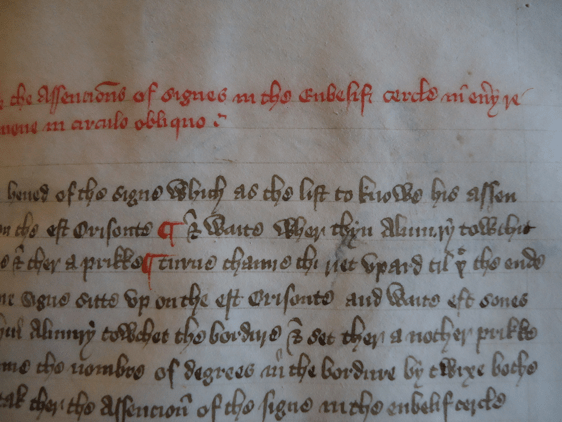 the Assencions of signes in the Enbelif cercle in eny re
in circulo obliquo
heued of the signe which as the list to knowe his assen
on the est Orisonte ¶ & waite wher thyn Almury towchit
& ther a prikke ¶ turne thanne thi riet vpward til þt the ende
signe sitte vp on the est Orisonte and waite eft sones
Almury towchet the bordure & set ther a nother prikke
the nombre of degrees in the bordure by twixe bothe
tak ther the Assencion of the signe in the enbelif cercle